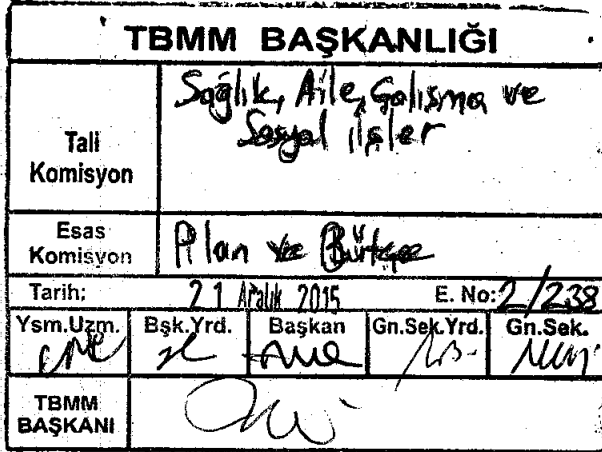 TBMM BAŞKANLIĞI
Tali Komisyon
Sağlık, Aile, Çalışma ve
Sosyal İşler
Esas Komisyon
Plan ve Bütçe
Tarih: 21 Aralık 2015 E. No: 2/238
Ysm.Uzm. Bşk.Yrd. Başkan Gn.Sek.Yrd. Gn.Sek.
TBMM BAŞKANI